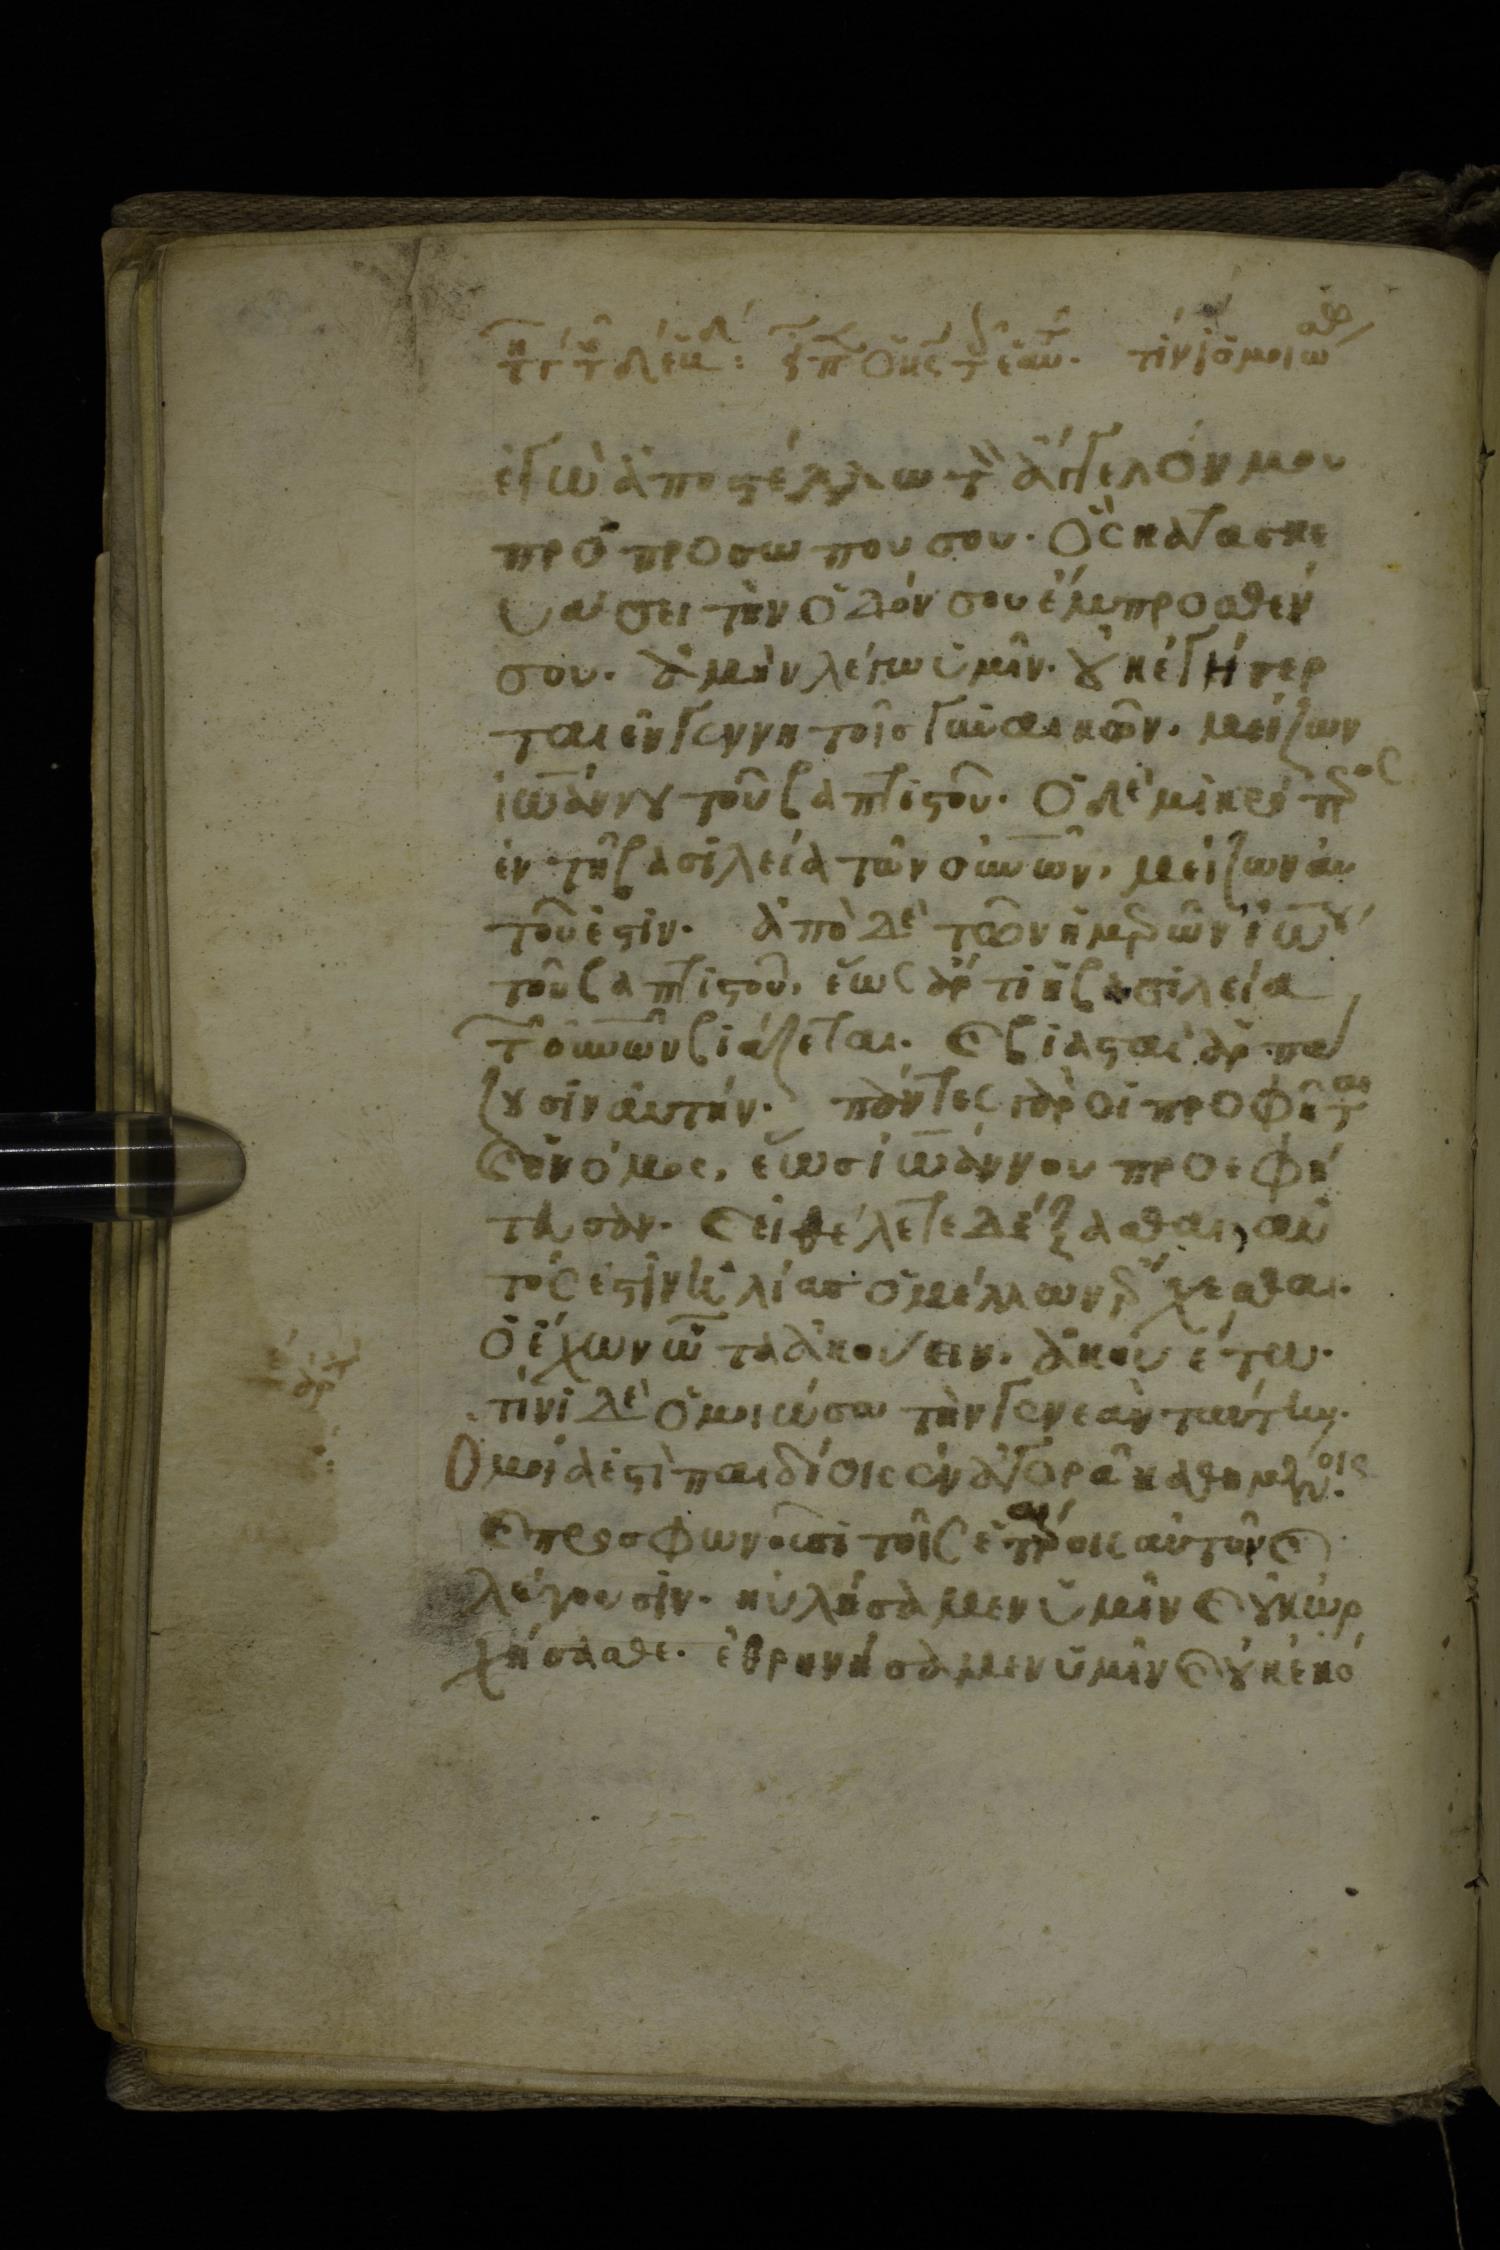 ἐγὼ ἀποστέλλω τὸν ἄγγελόν μου
πρὸ προσώπου σου. Ὃς κατασκε
υάσει τὴν ὁδόν σου ἔμπροσθέν
σου. ἀμὴν λέγω ὑμῖν. οὐκ ἐγήγερ
ται ἐν γεννητοῖς γυναικῶν. μείζων
ἰωάννου τοῦ βαπτιστοῦ. Ὁ δὲ μικρότερος
ἐν τῆ βασιλεία τῶν οὐνῶν, μείζων αυ
τοῦ ἐστίν. ἀπὸ δὲ τῶν ἡμερῶν ἰωου
τοῦ βαπτιστοῦ, ἕως ἄρτι ἡ βασιλεία
τῶν οὐνῶν βιάζεται. καὶ βιασταὶ ἁρπά
ζουσιν αὐτήν. πάντες γὰρ οἱ προφῆται
καὶ ὁ νόμος, ἕως ἰωάννου προεφή
τευσαν. καὶ εἰ θέλετε δέξασθαι, αὐ
τός ἐστιν ἠλίας ὁ μέλλων ἔρχεσθαι.
Ὁ ἔχων ὦτα ἀκούειν. ἀκουέτω.
τίνι δὲ ὁμοιώσω τὴν γενεὰν ταύτην.
Ὁμοία ἐστὶ παιδίοις ἐν ἀγορᾶ καθημένοις.
καὶ προσφωνοῦσι τοῖς ἑταίροις αὐτῶν καὶ
λέγουσιν. ηὐλήσαμεν ὑμῖν καὶ οὐκ ὠρ
χήσασθε. ἐθρηνήσαμεν ὑμῖν καὶ οὐκ ἐκό